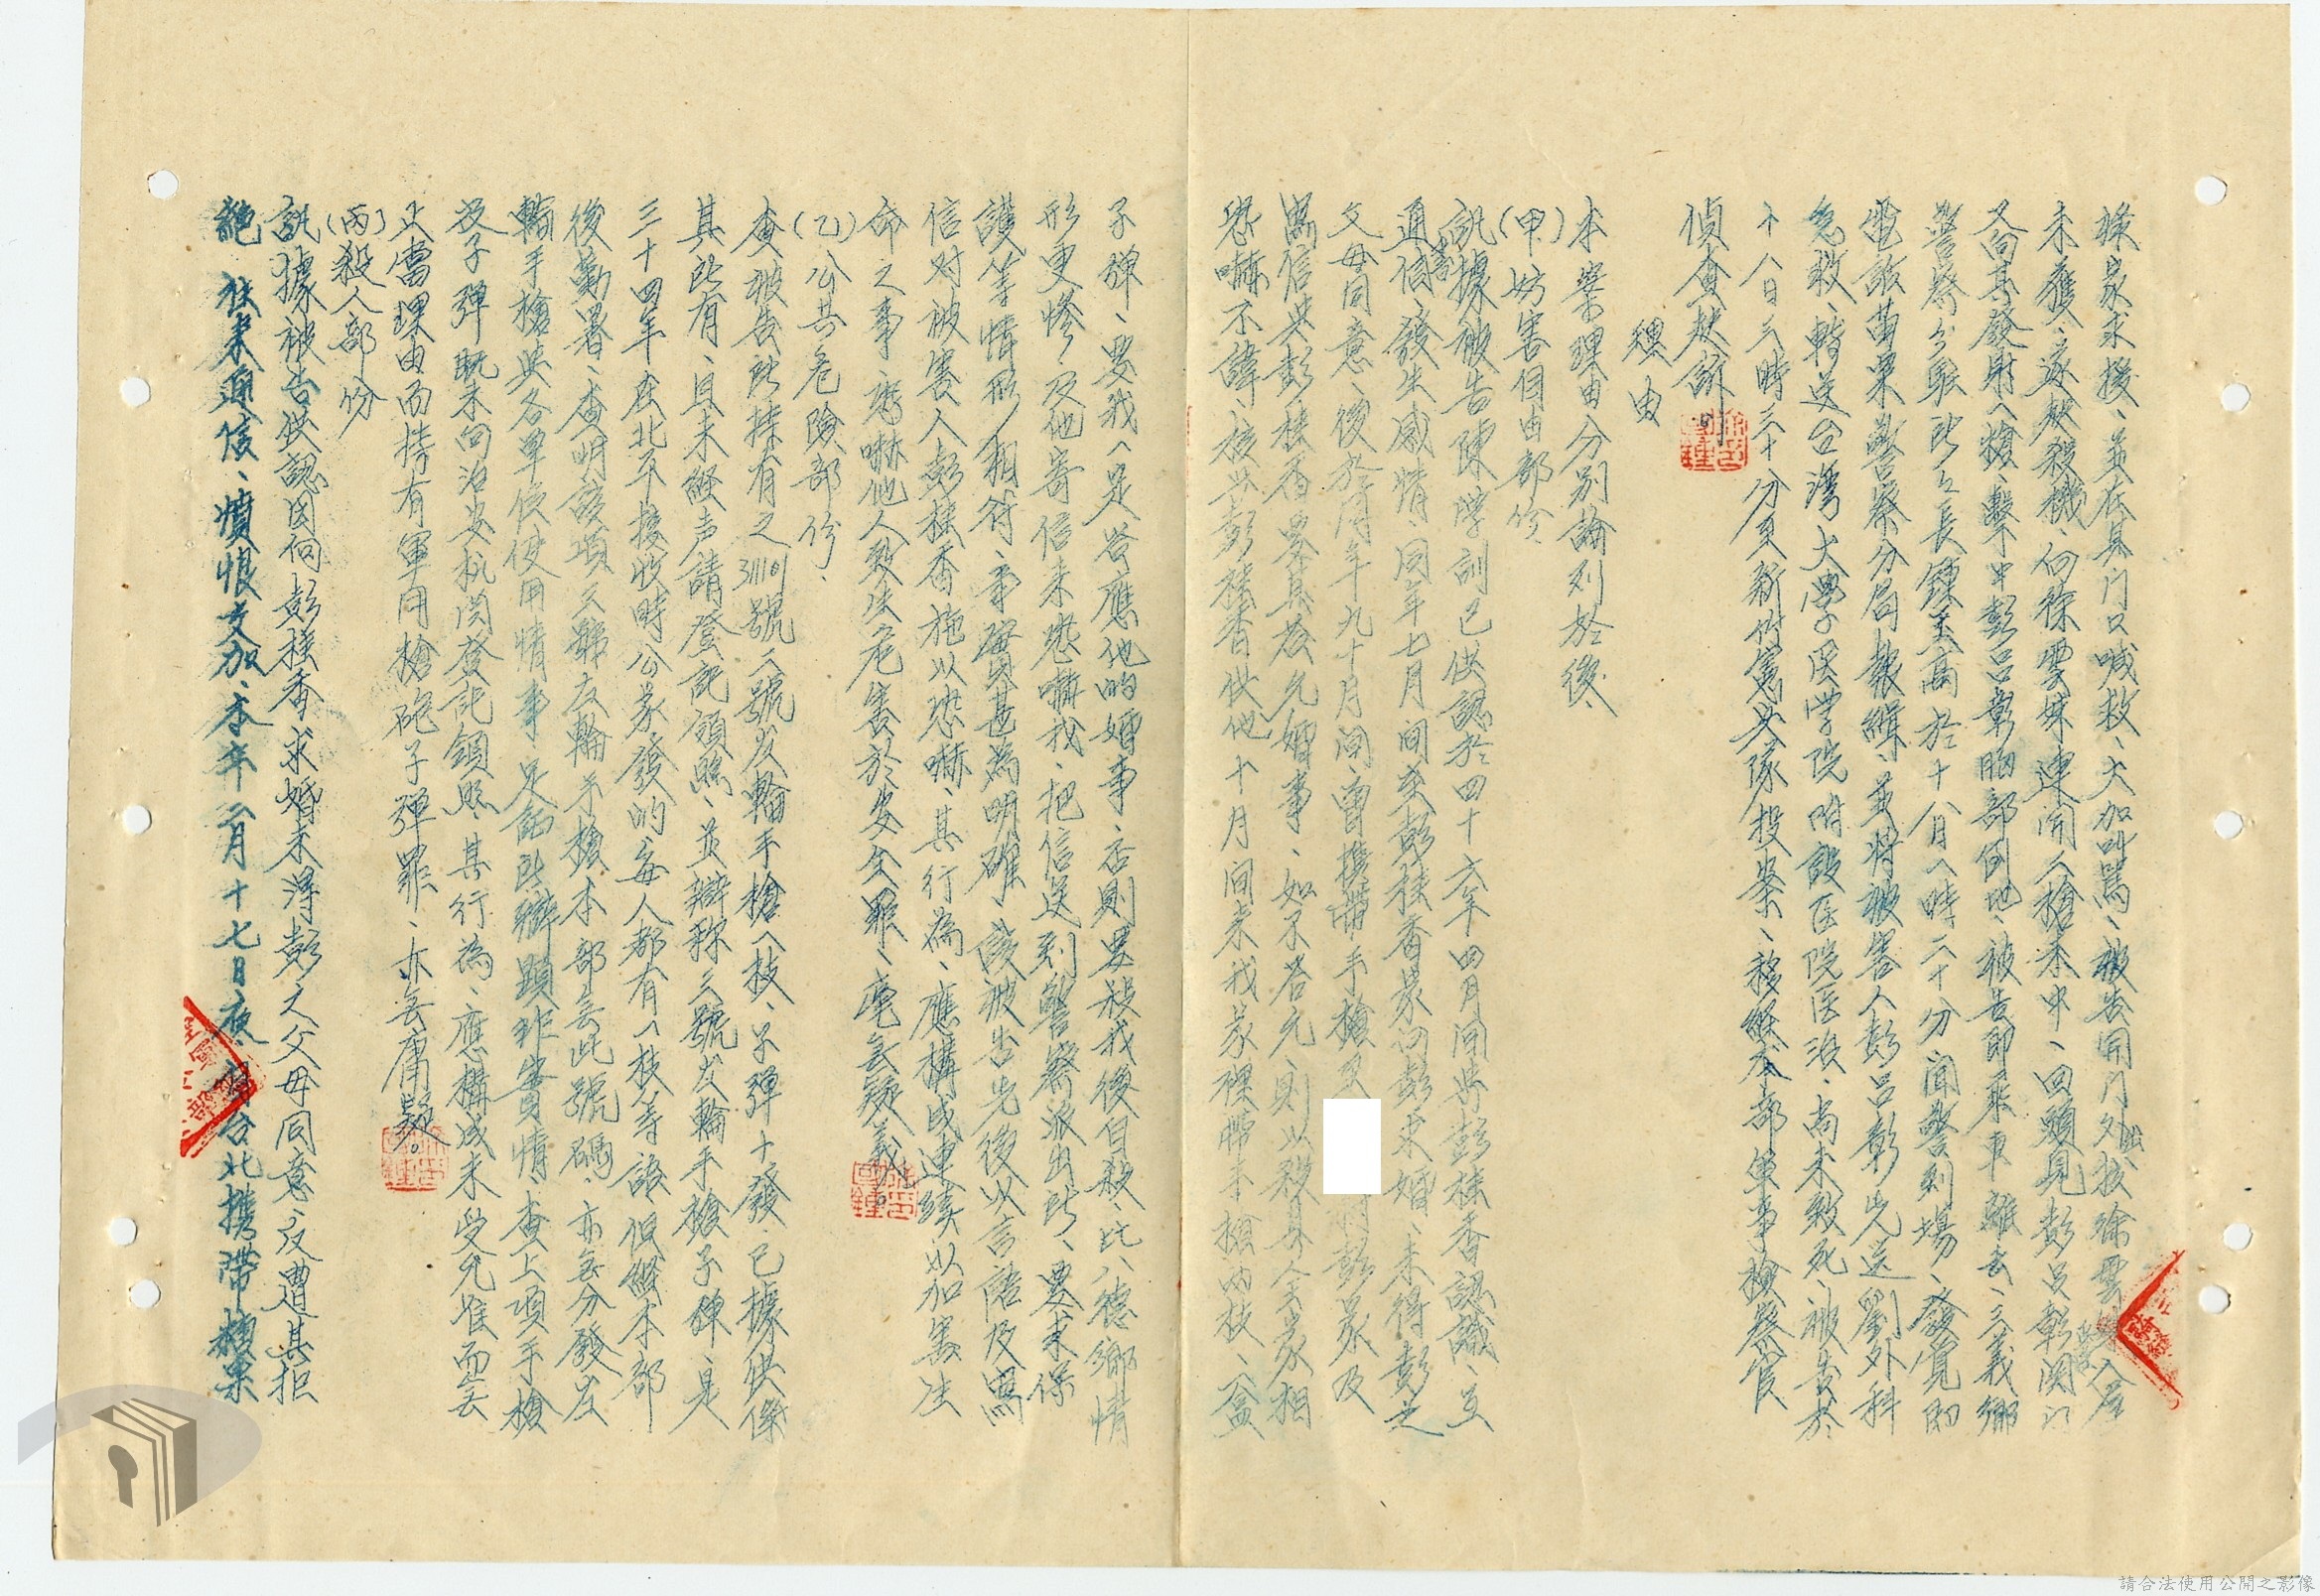 樑家求援、並在其門口喊救、大加叫罵、被告開門外出按徐雲妹入屋
未獲、遂起殺機、向徐雲妹連開二槍未中、回頭見彭呂彰関门
又向其發射一槍、擊中彭呂彰胸部倒地、被告即乘車離去、三義鄉
警察分駐所所長鍾玉高於十八日一時二十分聞警到場、發覚即
電話苗栗警察分局報緝、並將被害人彭呂彰先送劉外科
急救、轉送台灣大學医学院附設医院医治、尚未致死、被告於
十八日三時三十分至新竹憲兵隊投案、移經本部軍事檢察官
偵查起訴。
理由
本案理由分別論列於後、
(甲)妨害自由部份、
訊據被告陳學訓已供認於四十六年四月間與彭桂香認識、互
通信書、發生感情、同年七月間至彭桂香家向彭求婚、未得彭之
父母同意、後於同年九十月間、曾攜帶手槍至 彭家及
寫信與彭桂香要其答允婚事、如不答允、則以殺其全家相
恐嚇不諱、核與彭桂香供他十月间来我家裡帶手槍兩枝、一盒
子彈、要我一定答應他的婚事、否則要殺我後自殺、比八德鄉情
形更慘、及他寄信来恐嚇我、把信送到警察派出所、要求保
護等情形相符、事實甚為明確、該被告先後以言語及寫
信对被害人彭桂香施以恐嚇、其行為、應構成連續以加害生
命之事恐嚇他人致生危害於安全罪、毫無疑義。
(乙)公共危險部份、
查被告所持有之31110號二號左輪手槍一枝、子彈十發、已據供係
其所有、且未經声請登記領照、並辯称二號左輪手槍子彈、是
三十四年在北平接收時公家發的、每人都有一枝等語、但經本部
後勤署、查明該項二號左輪手槍、本部無此號碼、亦無分發左
輪手槍與各單位使用情事、足証所辯顯非實情、查上項手槍
及子彈既未向治安机関登記領照、其行為、應構成未受允准而無
正當理由而持有軍用槍砲子彈罪、亦無庸疑。
(丙)殺人部份
訊據被告供認因向彭桂香求婚未得彭之父母同意、反遭其拒
絕往来通信、憤恨交加、本年二月十七日夜、自台北攜帶糖菓
請合法使用公開之影像